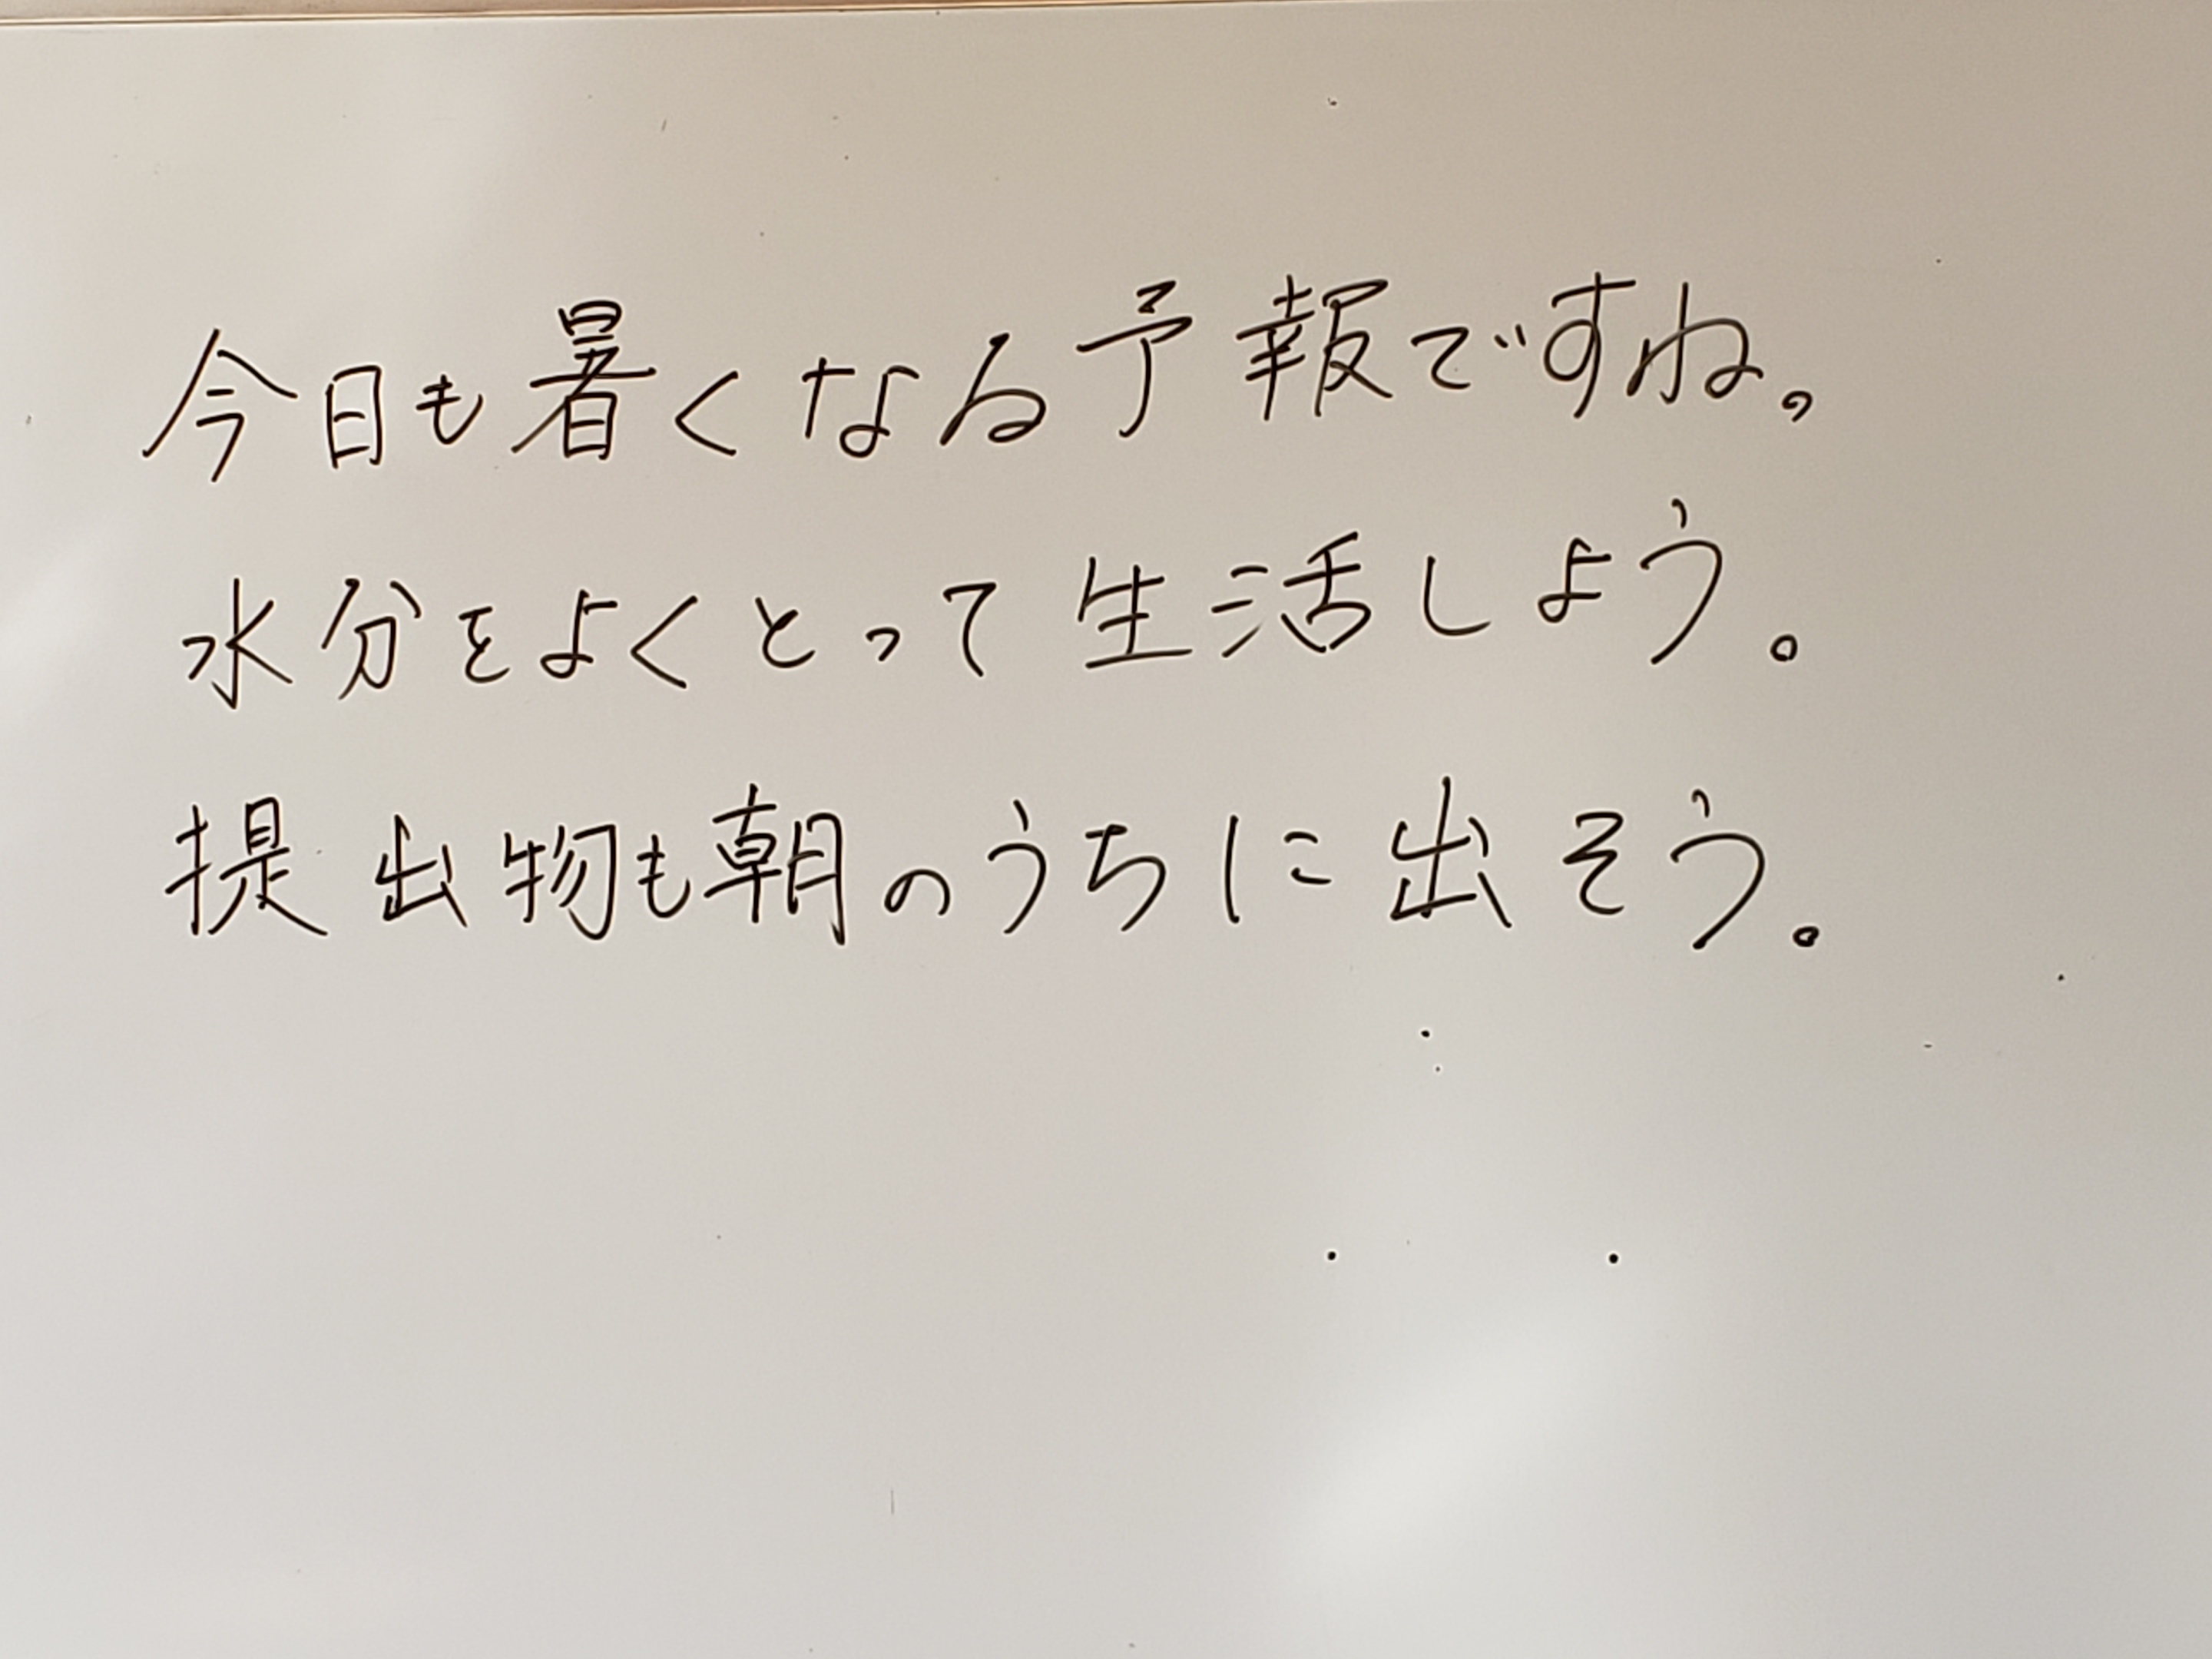 今日も暑くなる予報ですね。
水分をよくとって生活しよう。
提出物も朝のうちに出そう。